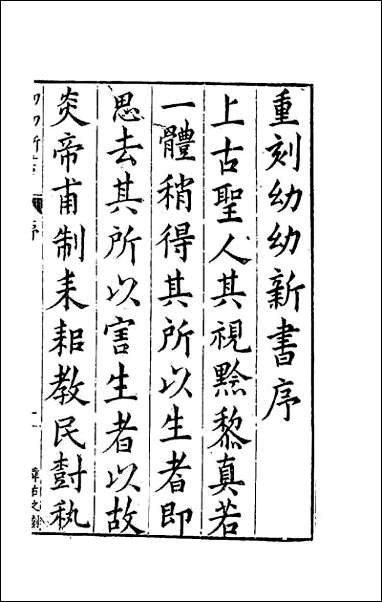 重刻幼幼新書序
上古聖人其視黔黎真若
一體稍得其所以生者即
思去其所以害生者以故
炎帝甫制耒耜教民尌秇
序